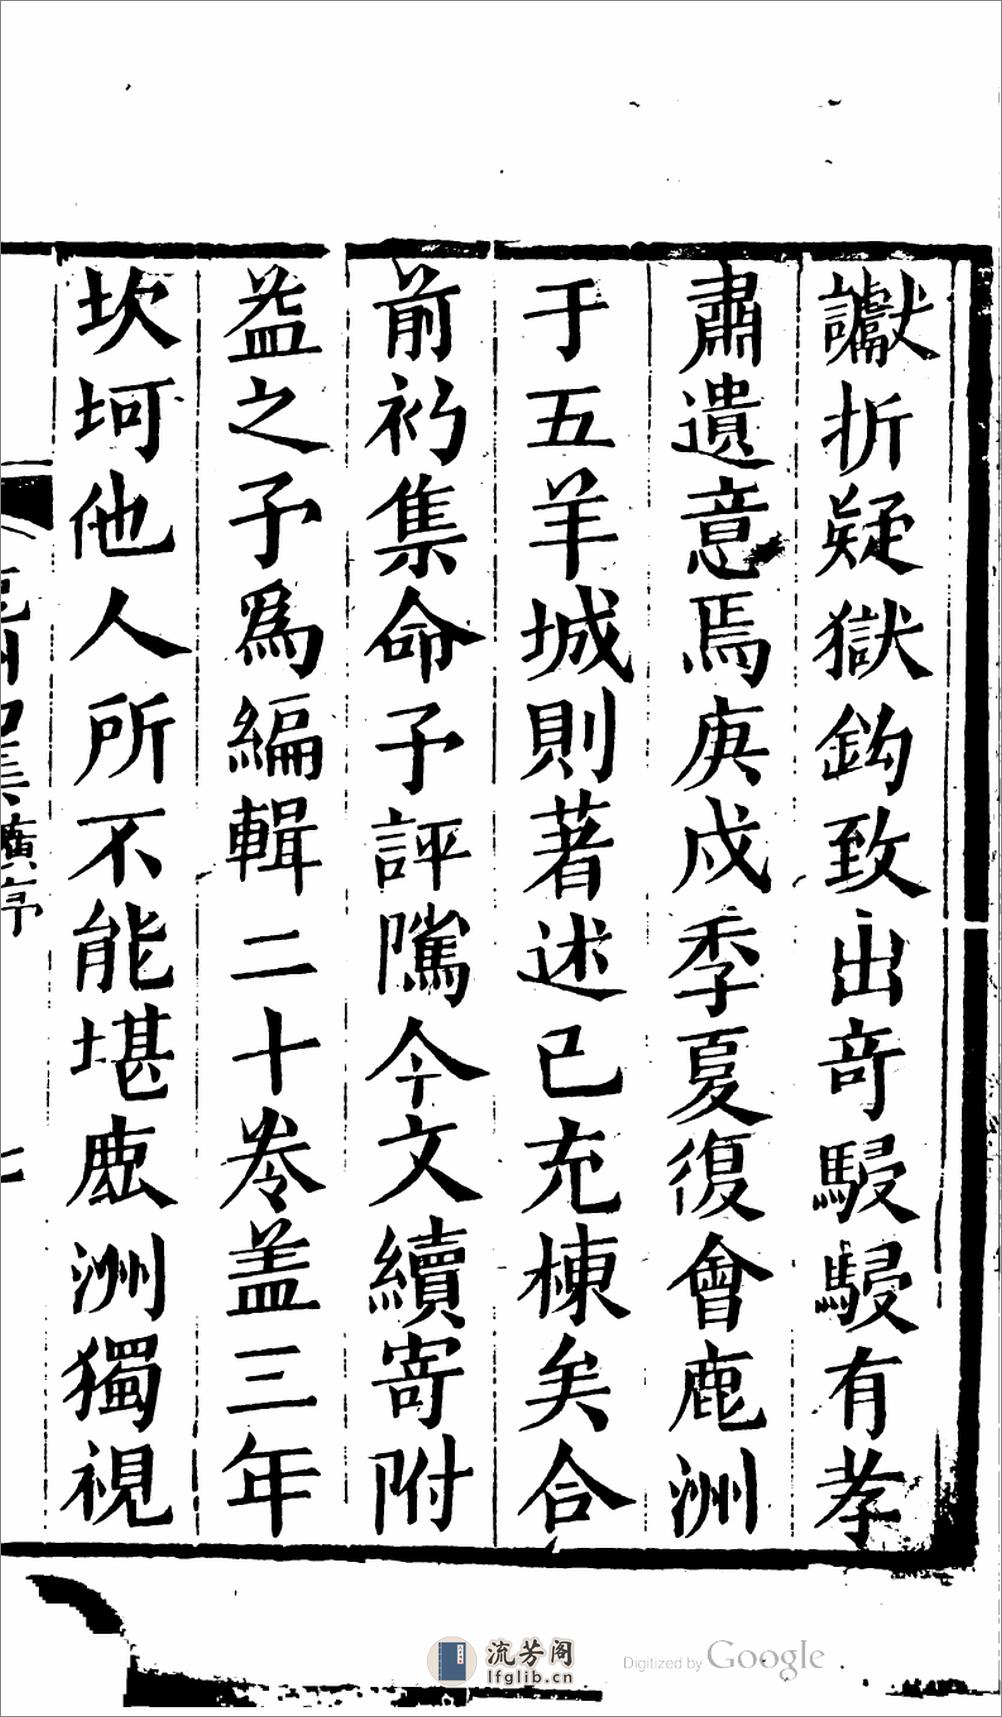 讞折疑獄鈎致出竒駸駸有孝
肅遺意焉庚戍季夏復會鹿洲
于五羊城則著述已充棟矣合
前初集命予評隲今文續寄附
益之予爲編輯二十卷盖三年
坎坷他人所不能堪鹿洲獨視
流芳阁
lfglib.cn
Digitized by Google